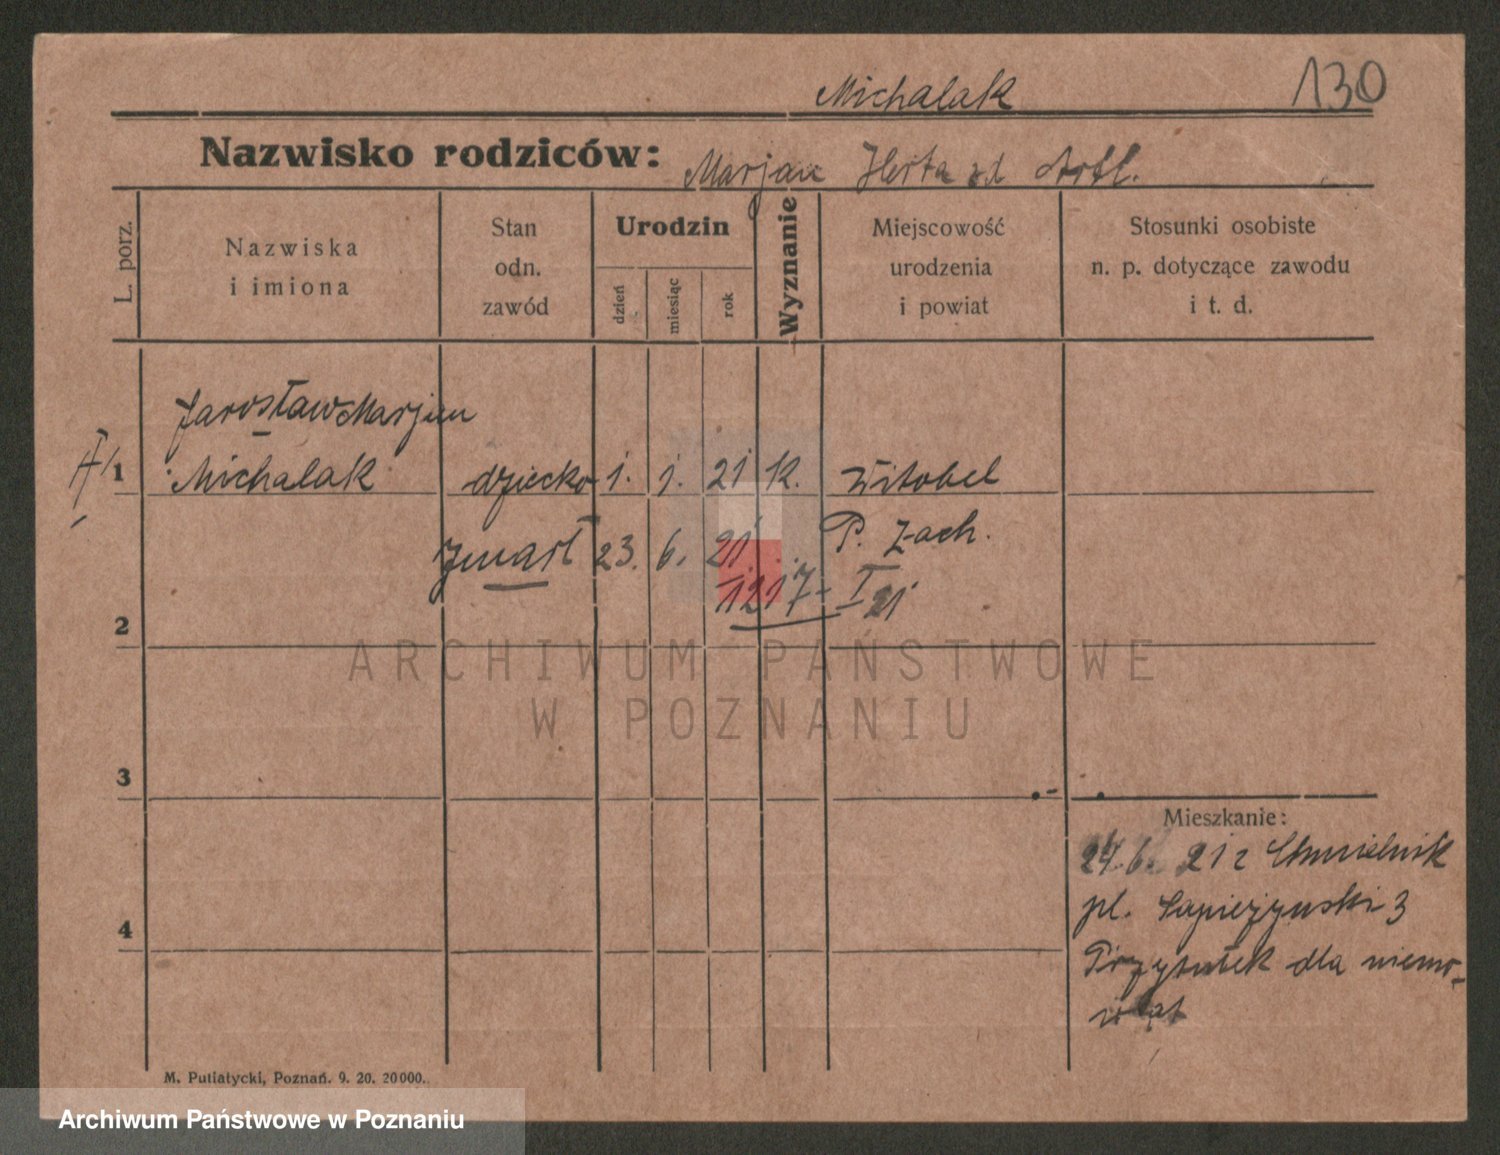 Michalak 130
Nazwisko rodziców: Marjan Herta zd Artl.
L. porz.
Nazwiska
i imiona
Stan
odn.
zawód
Urodzin
dzień
miesiąc
rok
Wyznanie
Miejscowość
urodzenia
i powiat
Stosunki osobiste
n. p. dotyczące zawodu
i t. d.
Jarosław Marjan
1 Michalak dziecko 1. 1. 21 k. Witobel
zmarł 23. 6. 21 P. Zach.
1217 - I 21
2
3
4
Mieszkanie:
24.6. 21 z Chmielnik
pl. Sapieżyński 3
Przytułek dla niemo-
wląt
M. Putiatycki, Poznań. 9. 20. 20000.
ARCHIWUM PAŃSTWOWE
W POZNANIU
Archiwum Państwowe w Poznaniu